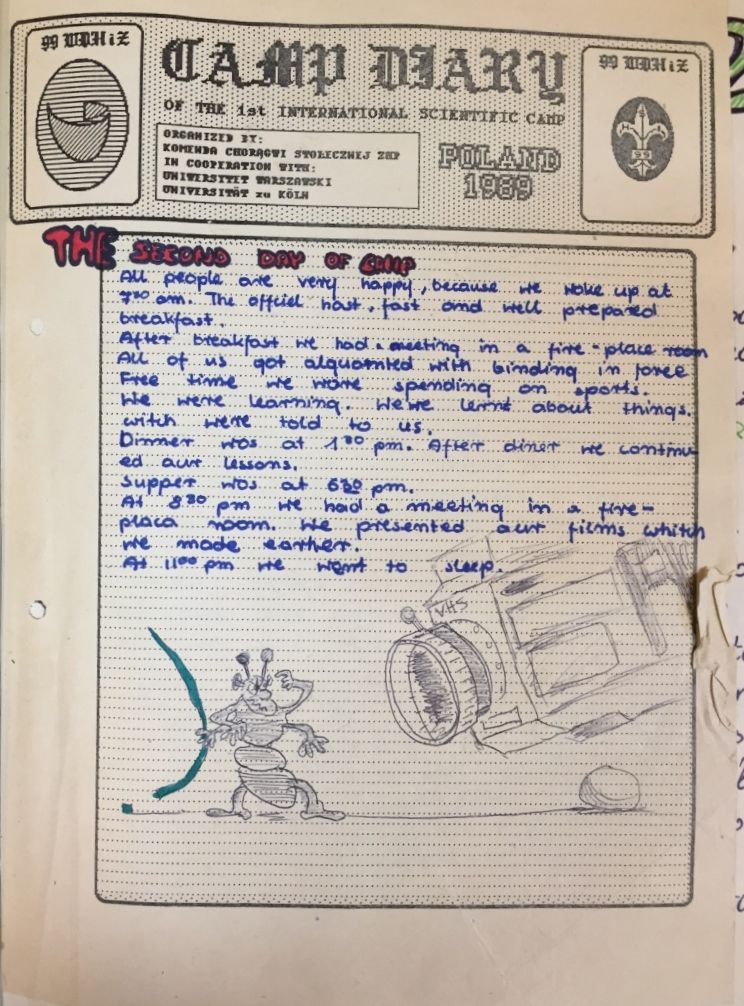 99 WDHiZ
CAMP DIARY
99 WDHiZ
OF THE 1st INTERNATIONAL SCIENTIFIC CAMP
ORGANIZED BY:
KOMENDA CHORĄGWI STOŁECZNEJ ZHP
IN COOPERATION WITH:
UNIWERSITET WARSZAWSKI
UNIVERSITÄT zu KÖLN
POLAND
1989
99
THE SECOND DAY OF CAMP
All people are very happy, because we woke up at
7³⁰ am. The officiel hast, fast and well prepared
breakfast.
After breakfast we had a meeting in a fire-place room
All of us got alquainted with binding in force
Free time we were spending on sports.
We were learning. We've lernt about things,
witch were told to us.
Dinner was at 1³⁰ pm. After diner we continu-
ed aur lessons.
Supper was at 6³⁰ pm.
At 8³⁰ pm we had a meeting in a fire-
placa room. We presented aur films whitch
we made earlier.
At 11⁰⁰ pm we went to sleep.
VHS